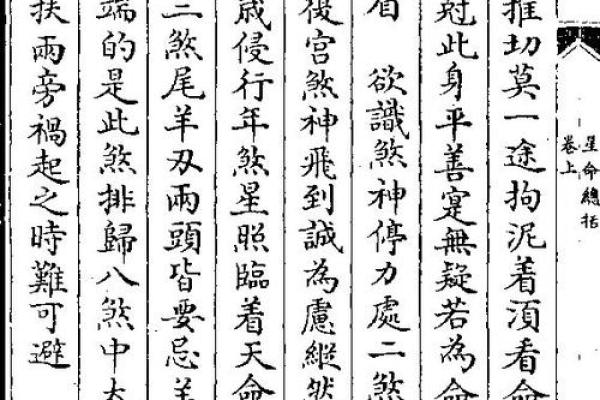 星命總括
卷上
推切莫一途拘泥着湏看命
尅此身平善寔無疑若為命
欲識煞神停力處二煞
後宮煞神飛到誠為慮縱然
歲侵行年煞星照臨着天命
煞尾羊刃兩頭皆要忌羊
端的是此煞排歸八煞中
扶兩旁禍起之時難可避